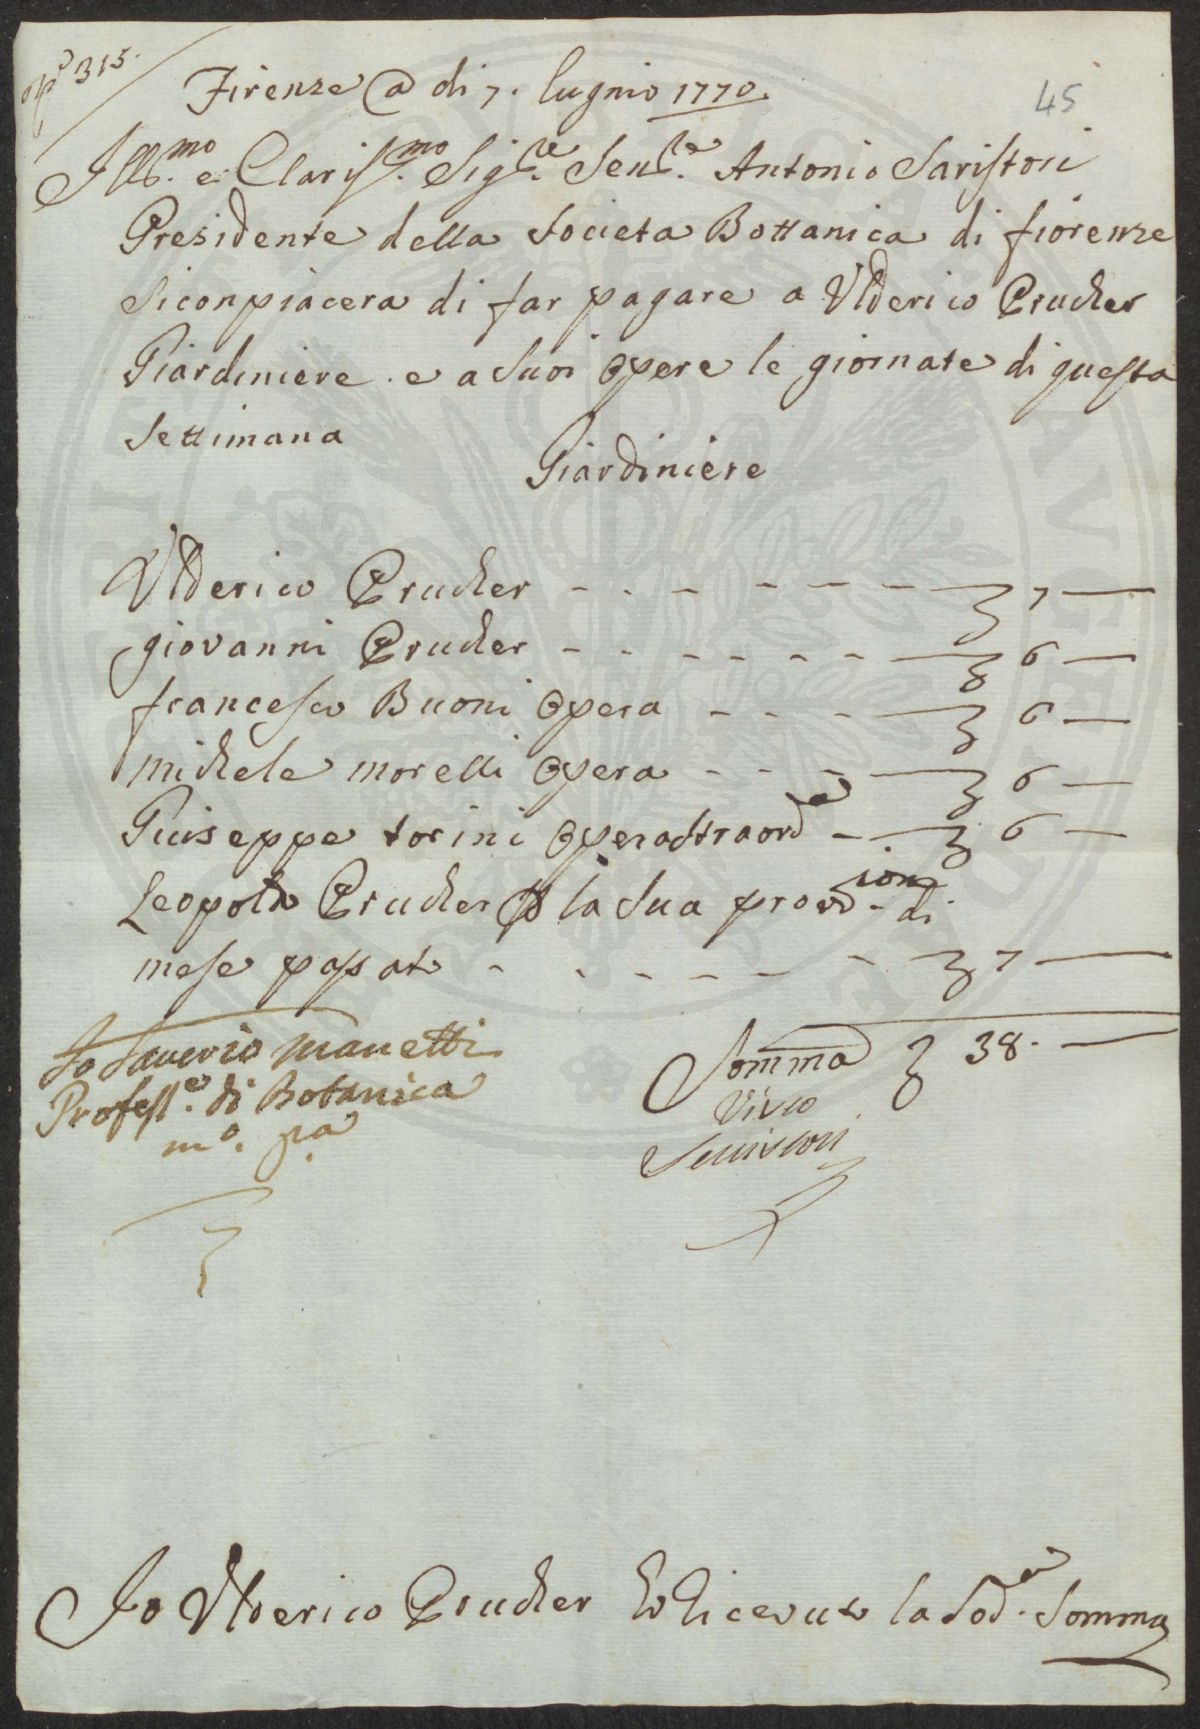 N.º 315.
45
Firenze @ di 7. lugnio 1770.
Ill.mo e Claris.mo Sig.re Sen.re Antonio Saristori
Presidente della Societa Bottanica di fiorenze
Siconpiacera di far pagare a Ulderico Prucher
Giardiniere e a Suoi Opere le giornate di questa
Settimana
Giardiniere
Ulderico Prucher 7
giovanni Prucher 6
francesco Buoni Opera 6
michele morelli Opera 6
Guiseppe torini Opera straord.a 6
Leopoldo Prucher la Sua provi.ione di
mese passato 7
Io Saverio Manetti
Profess.e di Botanica
m.o p.a
Somma 38.
Visto
Serristori
Io Ulderico Prucher ho Ricevuto la Sod.a Somma